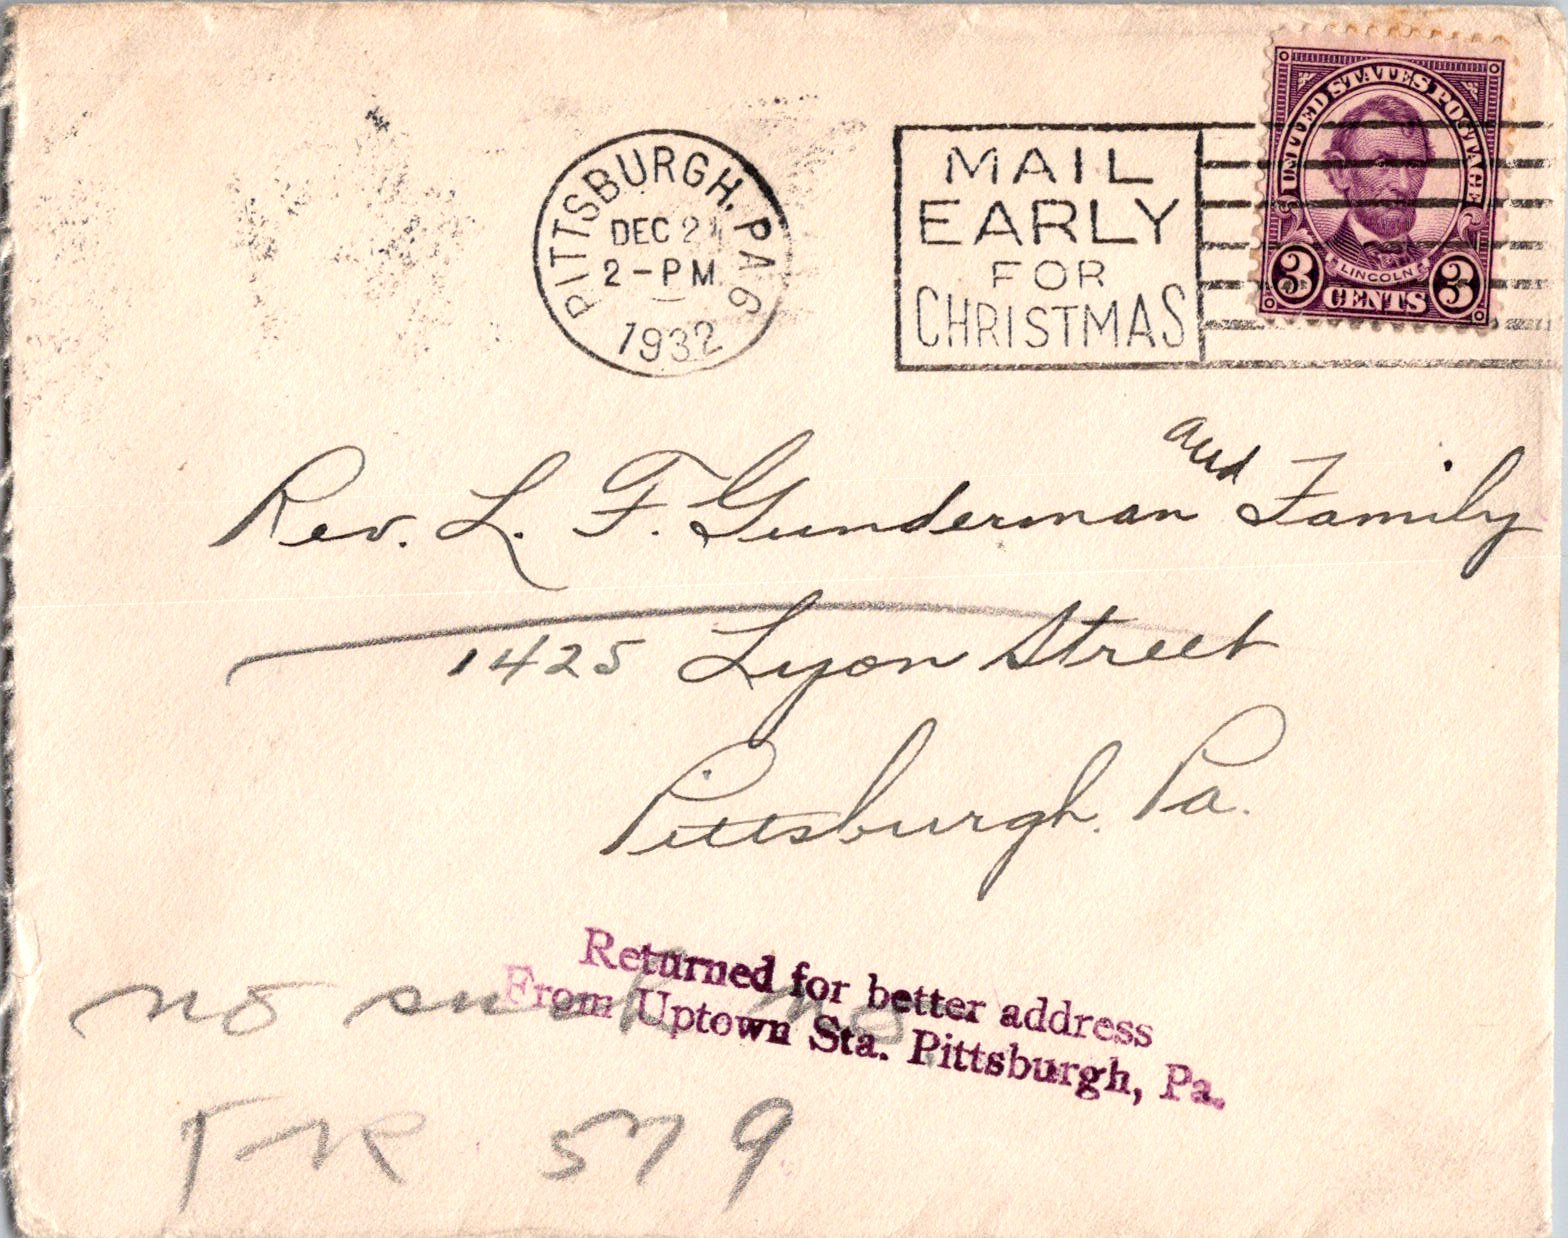 PITTSBURGH, PA 9
DEC 2
2-PM
1932
MAIL
EARLY
FOR
CHRISTMAS
UNITED STATES POSTAGE
LINCOLN
3 CENTS 3
Rev. L. F. Gunderman and Family
1425 Lyon Street
Pittsburgh. Pa.
Returned for better address
From Uptown Sta. Pittsburgh, Pa.
no such no
579